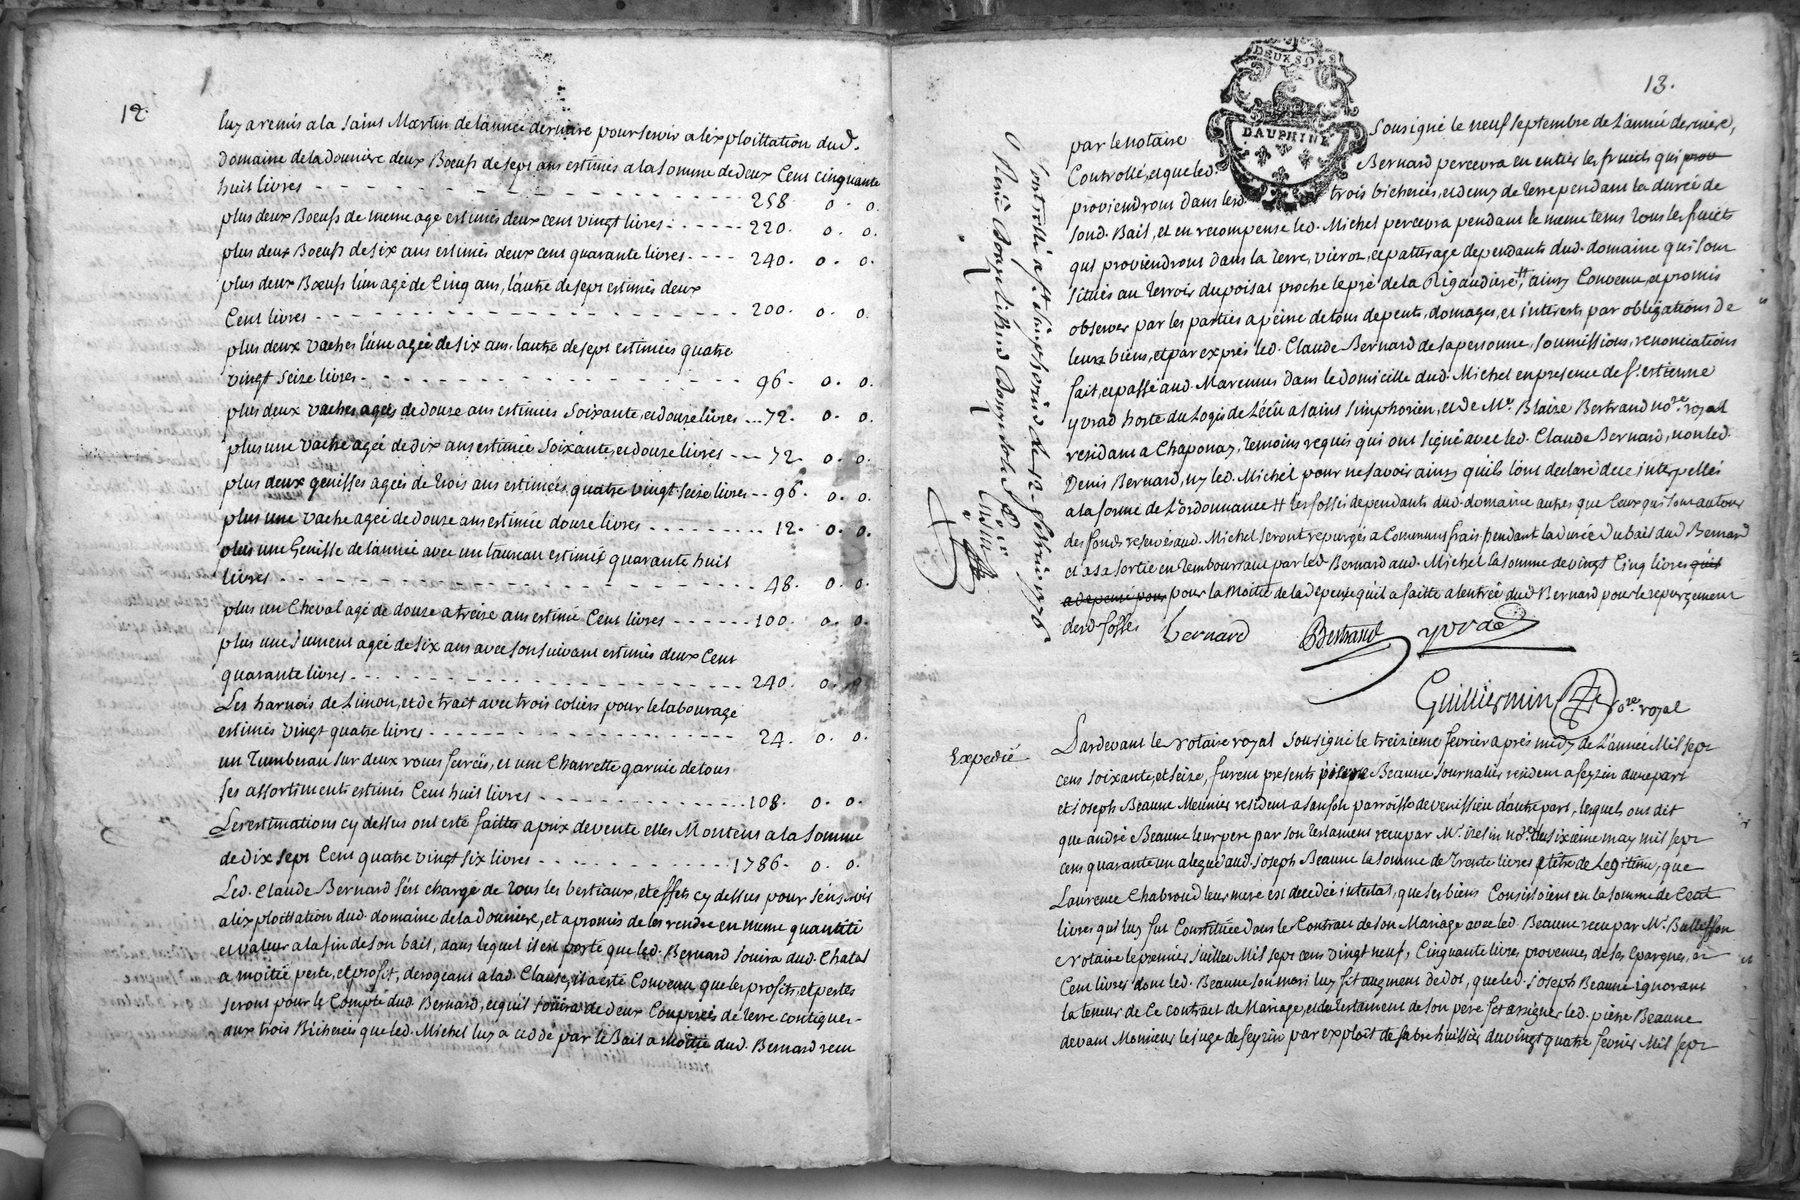 12.
luy a remis a la saint Martin de l'année derniere pour servir a l'exploittation dud.
domaine de la douniere deux Bœufs de sept ans estimés a la somme de deux Cent cinquante
huit livres - - - 258. o. o.
plus deux Bœufs de meme age estimés deux cent vingt livres - - - 220. o. o.
plus deux Bœufs de six ans estimés deux cent quarante livres - - - 240. o. o.
plus deux Bœufs l'un agé de Cinq ans, l'autre de sept estimés deux
Cent livres - - - 200. o. o.
plus deux vaches l'une agée de six ans, l'autre de sept estimées quatre
vingt seize livres - - - 96. o. o.
plus deux vaches agées de douze ans estimées soixante, et douze livres - - - 72. o. o.
plus une vache agée de dix ans estimée soixante, et douze livres - - - 72. o. o.
plus deux genisses agées de trois ans estimées quatre vingt seize livres - - 96. o. o.
plus une vache agée de douze ans estimée douze livres - - - 12. o. o.
plus une Genisse de l'année avec un taureau estimés quarante huit
livres - - - 48. o. o.
plus un Cheval agé de douze a treize ans estimé Cent livres - - - 100. o. o.
plus une Jument agée de six ans avec son suivant estimés deux Cent
quarante livres - - - 240. o. o.
Les harnois de Limon, et de trait avec trois coliers pour le labourage
estimés vingt quatre livres - - - 24. o. o.
un Tumbereau sur deux roues ferrées, et une Charrette garnie de tous
ses assortiments estimés Cent huit livres - - - 108. o. o.
Les estimations cy dessus ont esté faittes a prix de vente elles Montent a la somme
de Dix sept Cent quatre vingt six livres - - - 1786. o. o.
Led. Claude Bernard s'est chargé de tous les bestiaux, et effets cy dessus pour s'en servir
a l'exploittation dud. domaine de la Douniere, et a promis de les rendre en meme quantité
et valeur a la fin de son bail, dans lequel il est porté que led. Bernard jouira dud. Chatal
a moitié perte, et profit, derogeant a lad. Clause, il a esté Convenu que les profits, et pertes
seront pour le Compte dud. Bernard, et qu'il jouira de deux Couperées de terre contigues
aux trois Bicherées que led. Michel luy a cedé par le Bail a moitié dud. Bernard recu
13.
DEUX SOLS
DAUPHINE
par le notaire sousigné le neuf septembre de l'année derniere,
Controllé, et que led. Bernard percevra en entier les fruits qui prov
proviendront dans lesd. trois bicherées, et demy de terre pendant la durée de
sond. Bail, et en recompense led. Michel percevra pendant le meme tems tous les fruits
qui proviendront dans la terre, et patturage dependants dud. domaine qui sont
situés au terroir du poisat proche le pré de la Rigaudiere # ainsy Convenu, et promis
observer par les parties a peine de tous depents, domages, et interests par obligations de
leurs biens, et par exprés led. Claude Bernard de sa personne, soumissions, renonciations
fait, et passé aud. Marennes dans le domicille dud. Michel en presence de s.r estienne
yvrad hoste du Logis de L'écu a saint simphorien, et de M.e Blaize Bertrand no.re royal
residant a Chaponay, temoins requis qui ont signé avec led. Claude Bernard, non led.
Denis Bernard, ny led. Michel pour ne savoir ainsy qu'ils l'ont declaré de ce interpellés
a la forme de L'ordonnance # les fossés dependants dud. domaine autres que Ceux qui sont autour
des fonds reservés aud. Michel seront repurgés a Communs frais pendant la durée du bail dud Bernard
et a sa sortie en remboursant par led. Bernard aud. Michel la somme de vingt Cinq livres qu'il
a depensé pour pour la moitié de la depense qu'il a faitte a l'entrée dud Bernard pour le repurgement
desd. fossés
bernard Bertrand yvrad
Guilliermin no.re royal
Controllé a s.t simphorien le 12 fevrier 1776
Expedié
Pardevant le notaire royal sousigné le treizieme fevrier aprés midy de L'année Mil sept
cens soixante, et seize, furent presents pierre Beaune Journalier resident a feyzin d'une part
et joseph Beaune Meunier resident a Sanfon parroisse de venissieu d'autre part, lesquels ont dit
que andré Beaune leur pere par son testament recu par M.e no.re le sixieme may mil sept
cens quarante un a legué aud. joseph Beaune la somme de trente livres a titre de Legitime, que
Laurence Chabroud leur mere est decedée intestat, que ses biens Consistoient en la somme de Cent
livres qui luy fut Constituée dans le Contract de son Mariage avec led. Beaune recu par M.e
Notaire le premier juillet Mil sept cens vingt neuf, Cinquante livres provenues de ses Epargnes, et
Cent livres dont led. Beaune son mari luy fit augment de dot, que led. joseph Beaune ignorant
la teneur de Ce contract de Mariage, et du testament de son pere fit assigner led. pierre Beaune
devant Monsieur le juge de feyzin par exploit de fabre huissier du vingt quatre fevrier Mil sept